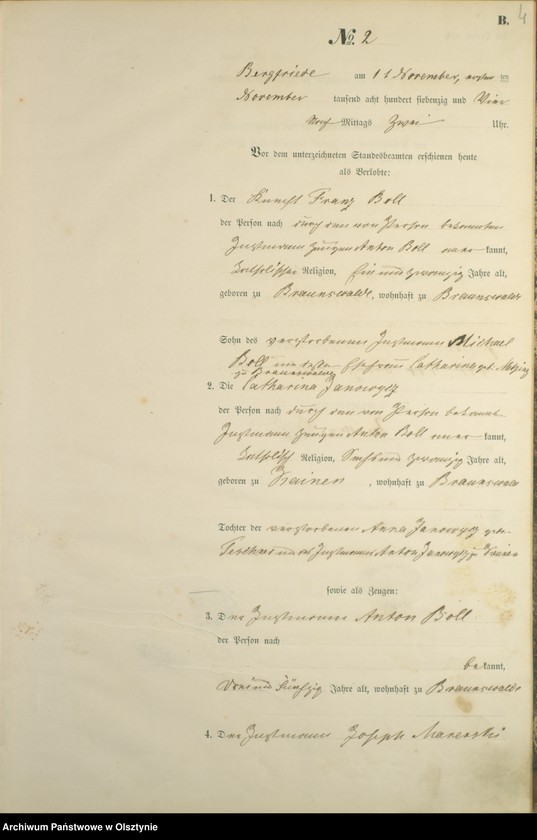 B. 4
No. 2
Bergfriede am 11 November, ersten ten
November tausend acht hundert siebenzig und Vier
Nach Mittags Zwei Uhr.
Vor dem unterzeichneten Standesbeamten erschienen heute
als Verlobte:
1. Der Knecht Franz Boll
der Person nach durch den von Person bekannten
Instmann Zeugen Anton Boll aner kannt,
Katholischer Religion, Ein und zwanzig Jahre alt,
geboren zu Braunswalde, wohnhaft zu Braunswalde
Sohn des verstorbenen Instmann Michael
Boll und dessen Ehefrau Catharina geb.
zu Braunswalde
2. Die Catharina Janowycz
der Person nach durch den von Person bekannt
Instmann Zeugen Anton Boll aner kannt,
Katholisch Religion, Sechs und zwanzig Jahre alt,
geboren zu Krainen, wohnhaft zu Braunswalde
Tochter der verstorbenen Anna Janowycz geb.
und des Instmann Anton Janowycz zu
sowie als Zeugen:
3. Der Instmann Anton Boll
der Person nach
be kannt,
Drei und Fünfzig Jahre alt, wohnhaft zu Braunswalde
4. Der Instmann Joseph
Archiwum Państwowe w Olsztynie